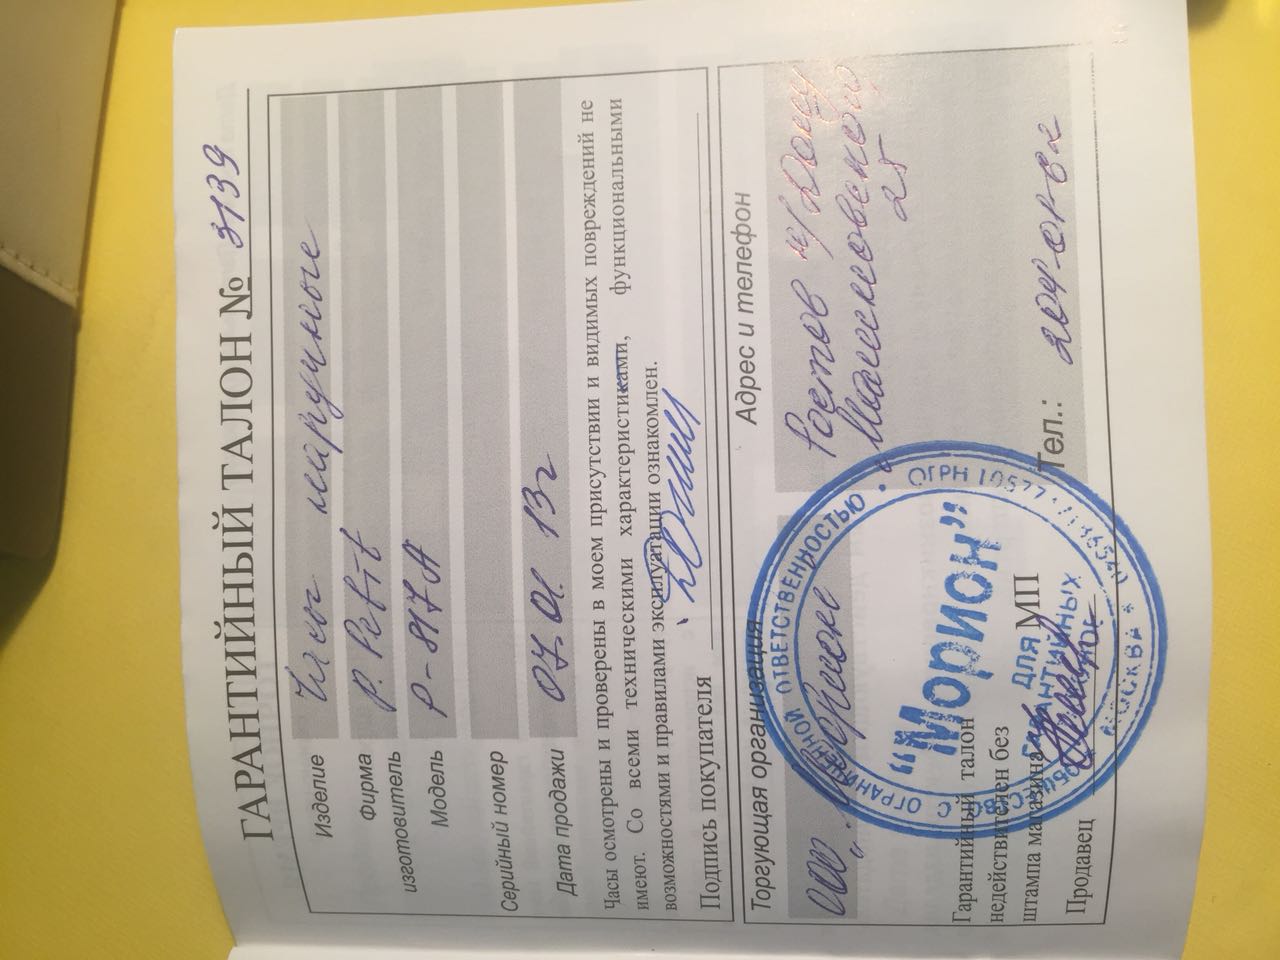 ГАРАНТИЙНЫЙ ТАЛОН № 3139
Изделие Часы наручные
Фирма изготовитель P. Petit
Модель P-817A
Серийный номер
Дата продажи 07.01.13г
Часы осмотрены и проверены в моем присутствии и видимых повреждений не
имеют. Со всеми техническими характеристиками, функциональными
возможностями и правилами эксплуатации ознакомлен.
Подпись покупателя
Торгующая организация
ООО "Морион"
Адрес и телефон
Ростов н/Дону
25
Тел.:
Гарантийный талон
недействителен без
штампа магазина
МП
Продавец
ОБЩЕСТВО С ОГРАНИЧЕННОЙ ОТВЕТСТВЕННОСТЬЮ • ОГРН
МОСКВА
"Морион"
ДЛЯ
ГАРАНТИЙНЫХ